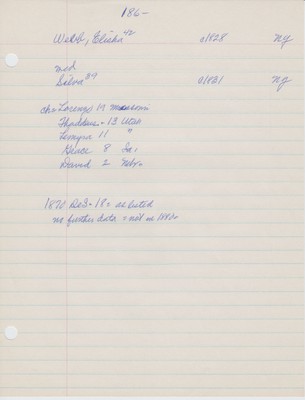 186-
Webb, Elisha 42 c1828 NY
med
Silva 39 c1831 NY
ch= Lorenzo 19 Missouri
Thaddeus - 13 Utah
Lemyra 11 "
Grace 8 Ia,
David 2 Nebr
1870 - 18= as listed
no further data = not in 1880